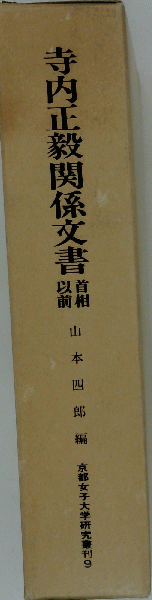 寺内正毅関係文書
首相
以前
山本四郎編
京都女子大学研究叢刊9